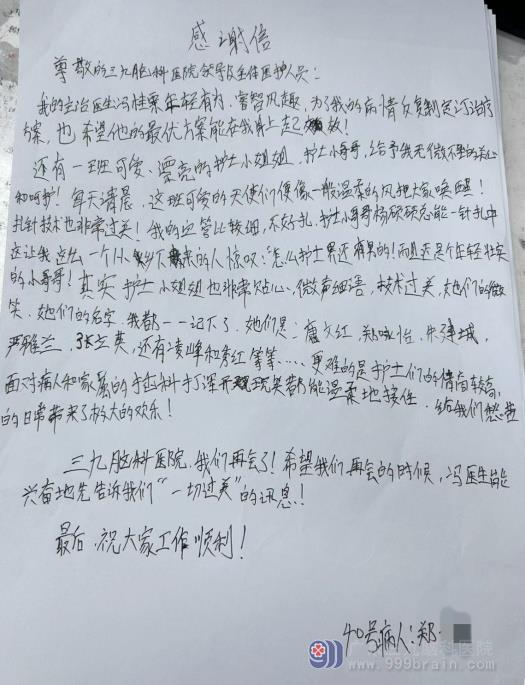 感谢信
尊敬的三九脑科医院领导及全体医护人员：
我的主治医生冯桂栗年轻有为，睿智风趣，为了我的病情反复制定订治疗
方案，也希望他的最优方案能在我身上起效！
还有一班可爱、漂亮的护士小姐姐、护士小哥哥，给予我无微不至的关心
和呵护！每天清晨，这班可爱的天使们便像一般温柔的风把大家唤醒！
扎针技术也非常过关！我的血管比较细，不好扎，护士小哥哥杨硕硕总能一针扎中
这让我这么一个从乡下来的人惊叹：怎么护士界还有男的！而且还是个年轻壮实
的小哥哥！其实护士小姐姐也非常贴心，微声细语，技术过关，她们的微
笑、她们的名字，我都一一记下了，她们是：唐文红、郑咏怡、朱建城，
严雅兰、张立英，还有凌峰和秀红等等……更难的是护士们的情商较高，
面对病人和家属的 都能温柔地接住，给我们
的日常带来了放大的欢乐！
三九脑科医院，我们再会了！希望我们再会的时候，冯医生能
兴奋地先告诉我们“一切过关”的讯息！
最后，祝大家工作顺利！
40号病人：郑
广东三九脑科医院
www.999brain.com